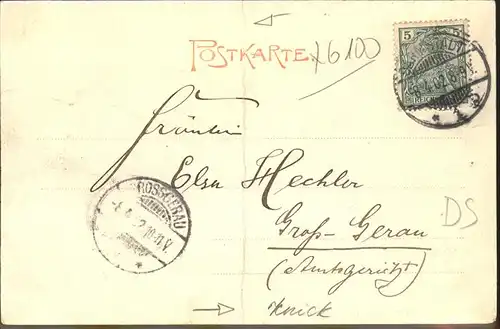 POSTKARTE
6100
5
REICHSPOST
Fräulein
Elsa Hechler
GROSSGERAU
Groß-Gerau
DS
(Amtsgericht)
Knick